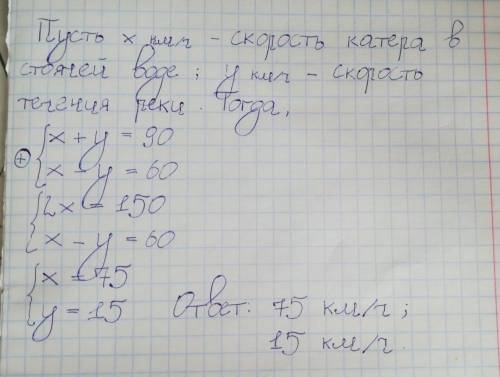 Пусть x км/ч - скорость катера в
стоячей воде; y км/ч - скорость
течения реки. Тогда,
x + y = 90
+
x - y = 60
2x = 150
x - y = 60
x = 75
y = 15 Ответ: 75 км/ч;
15 км/ч.